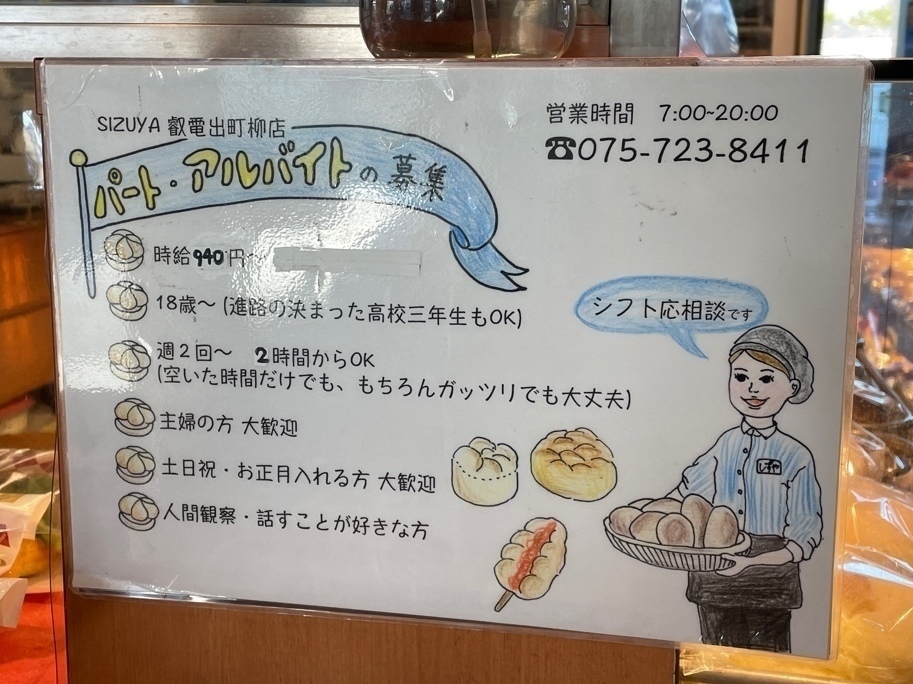 SIZUYA 叡電出町柳店
パート・アルバイトの募集
営業時間 7:00~20:00
☎075-723-8411
時給940円〜
18歳〜 (進路の決まった高校三年生もOK)
週2回〜 2時間からOK
(空いた時間だけでも、もちろんガッツリでも大丈夫)
主婦の方 大歓迎
土日祝・お正月入れる方 大歓迎
人間観察・話すことが好きな方
シフト応相談です